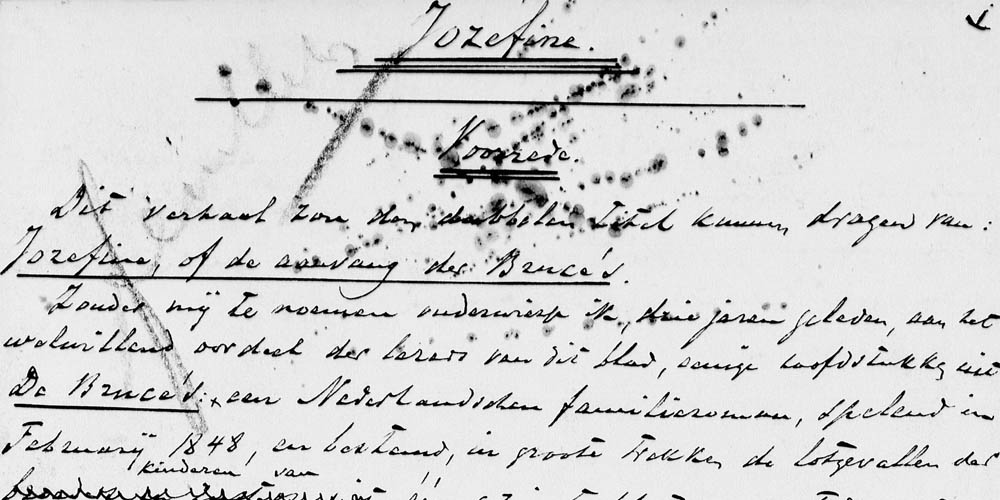 1
Jozefine.
Voorrede.
Dit verhaal zou den dubbelen titel kunnen dragen van:
Jozefine, of de aanvang der Bruce's.
Zonder mij te noemen onderwierp ik, drie jaren geleden, aan het
welwillend oordeel der lezers van dit blad, eenige hoofdstukken uit
De Bruce's: een Nederlandschen familieroman, spelend in
Februarij 1848, en bestemd, in groote trekken de lotgevallen der
kinderen van